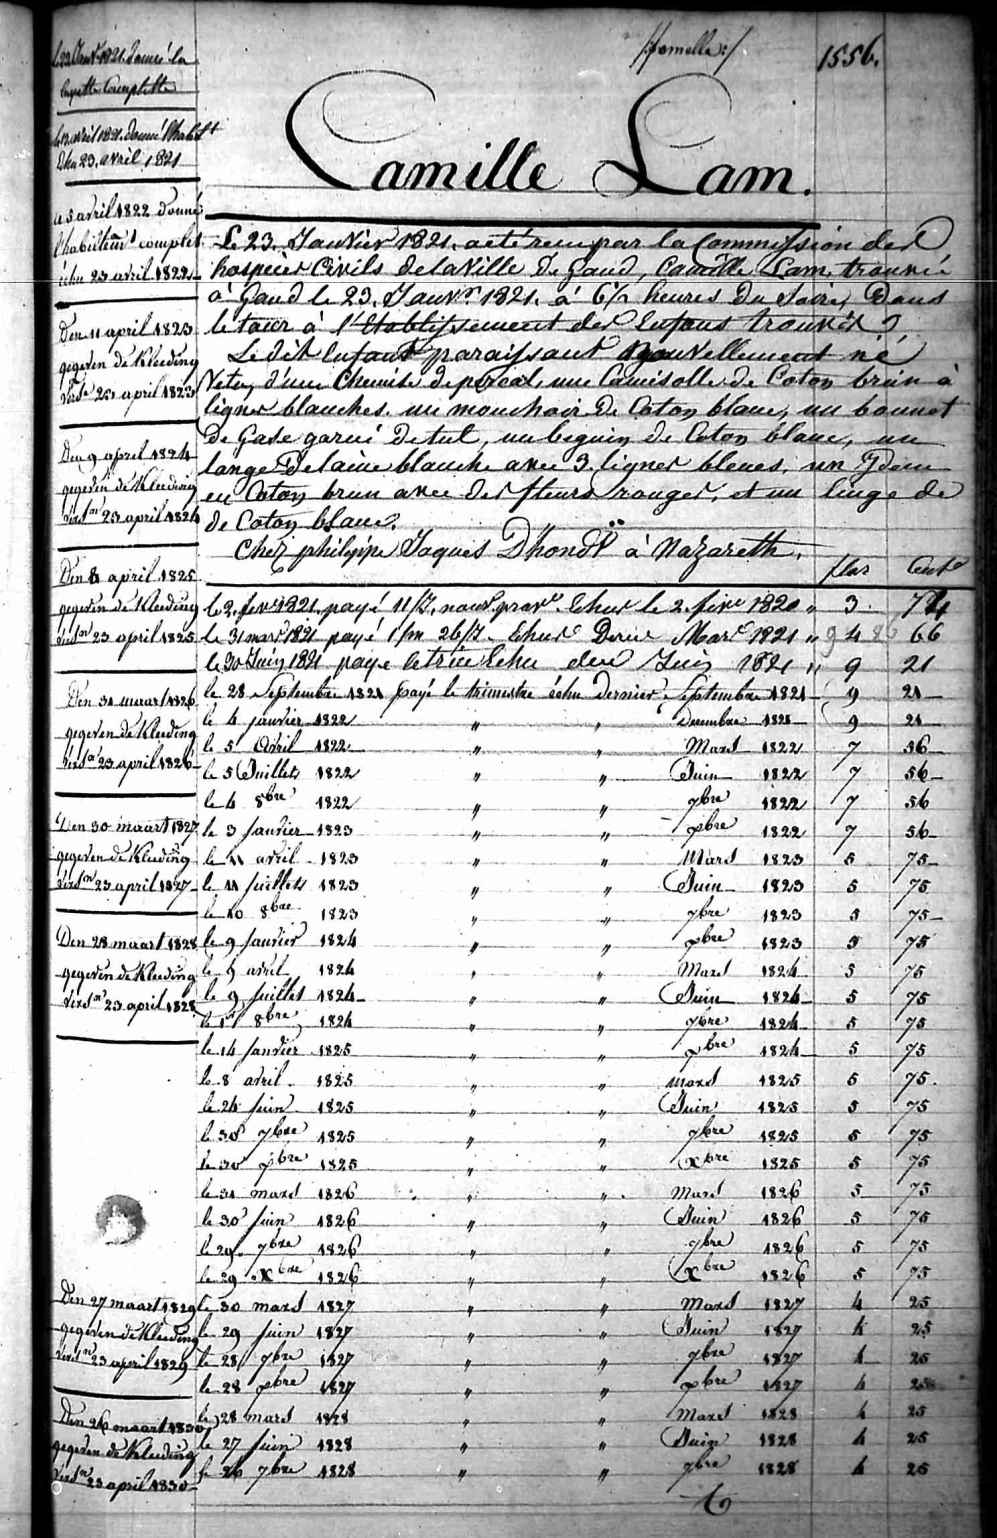 /:femelle:/ 1556.
Camille Lam.
le 23 Janv.r 1821. donné la
layette Complette
le 13 avril 1821. donné l'habill.t
Echu 23. avril 1821
Le 5 avril 1822 donné
l'habillem.t complet
échu 23 avril 1822
Den 11 april 1823
gegeven de Kleeding
versn 23 april 1823
Den 9 april 1824
gegeven de Kleeding
versn 23 april 1824
Den 8 april 1825
gegeven de Kleeding
versn 23 april 1825
Den 31 maart 1826
gegeven de Kleeding
versn 23 april 1826
Den 30 maart 1827
gegeven de Kleeding
versn 23 april 1827
Den 28 maart 1828
gegeven de Kleeding
versn 23 april 1828
Den 27 maart 1829
gegeven de Kleeding
versn 23 april 1829
Den 26 maart 1830
gegeven de Kleeding
versn 23 april 1830
Le 23. Janvier 1821. a été reçu par la Commission des
hospices Civils de la Ville de Gand, Camille Lam, trouvée
à Gand le 23. Janv.r 1821. à 6 1/2 heures du Soir, Dans
le tour à l'Etablissement des Enfans trouvés
Le dit Enfant paraissant nouvellement né
Vetu, d'une Chemise de percal, une Camisolle de Coton brun à
lignes blanches. un mouchoir de Coton blanc, un bonnet
de Gase garni de tul, un beguin de Coton blanc, un
lange de laine blanche avec 3. lignes bleues. un Idem
en Coton brun avec des fleurs rouges, et un linge de
de Coton blanc.
Chez philippe Jaques Dhondt à Nazareth.
flor Cents
le 2. fevr 1821. payé 11/J. nouv. prav.e Echus le 2. fevr 1820 " 3. 74
le 31 mars 1821 payé 1/m 26/J. Echus Dernier Mars 1821 " 9 4 86 66
le 30 Juin 1821 payé le trim Echu der Juin 1821 " 9 21
le 28 Septembre 1821 payé le trimestre échu dernier Septembre 1821 9 21
le 4 janvier 1822 " " Decembre 1821 9 21
le 5 Avril 1822 " " Mars 1822 7 56
le 5 Juillets 1822 " " Juin 1822 7 56
le 4 8bre 1822 " " 7bre 1822 7 56
le 3 janvier 1823 " " xbre 1822 7 56
le 11 avril 1823 " " Mars 1823 5 75
le 11 juillets 1823 " " Juin 1823 5 75
le 10 8bre 1823 " " 7bre 1823 5 75
le 9 janvier 1824 " " xbre 1823 5 75
le 9 avril 1824 " " Mars 1824 5 75
le 9 juillet 1824 " " Juin 1824 5 75
le 1er 8bre 1824 " " 7bre 1824 5 75
le 14 janvier 1825 " " xbre 1824 5 75
le 8 avril 1825 " " mars 1825 5 75
le 24 juin 1825 " " Juin 1825 5 75
le 30 7bre 1825 " " 7bre 1825 5 75
le 30 xbre 1825 " " Xbre 1825 5 75
le 31 mars 1826 " " Mars 1826 5 75
le 30 juin 1826 " " Juin 1826 5 75
le 29 7bre 1826 " " 7bre 1826 5 75
le 29 Xbre 1826 " " Xbre 1826 5 75
le 30 mars 1827 " " Mars 1827 4 25
le 29 juin 1827 " " Juin 1827 4 25
le 28 7bre 1827 " " 7bre 1827 4 25
le 28 xbre 1827 " " xbre 1827 4 25
le 28 mars 1828 " " Mars 1828 4 25
le 27 juin 1828 " " Juin 1828 4 25
le 26 7bre 1828 " " 7bre 1828 4 25